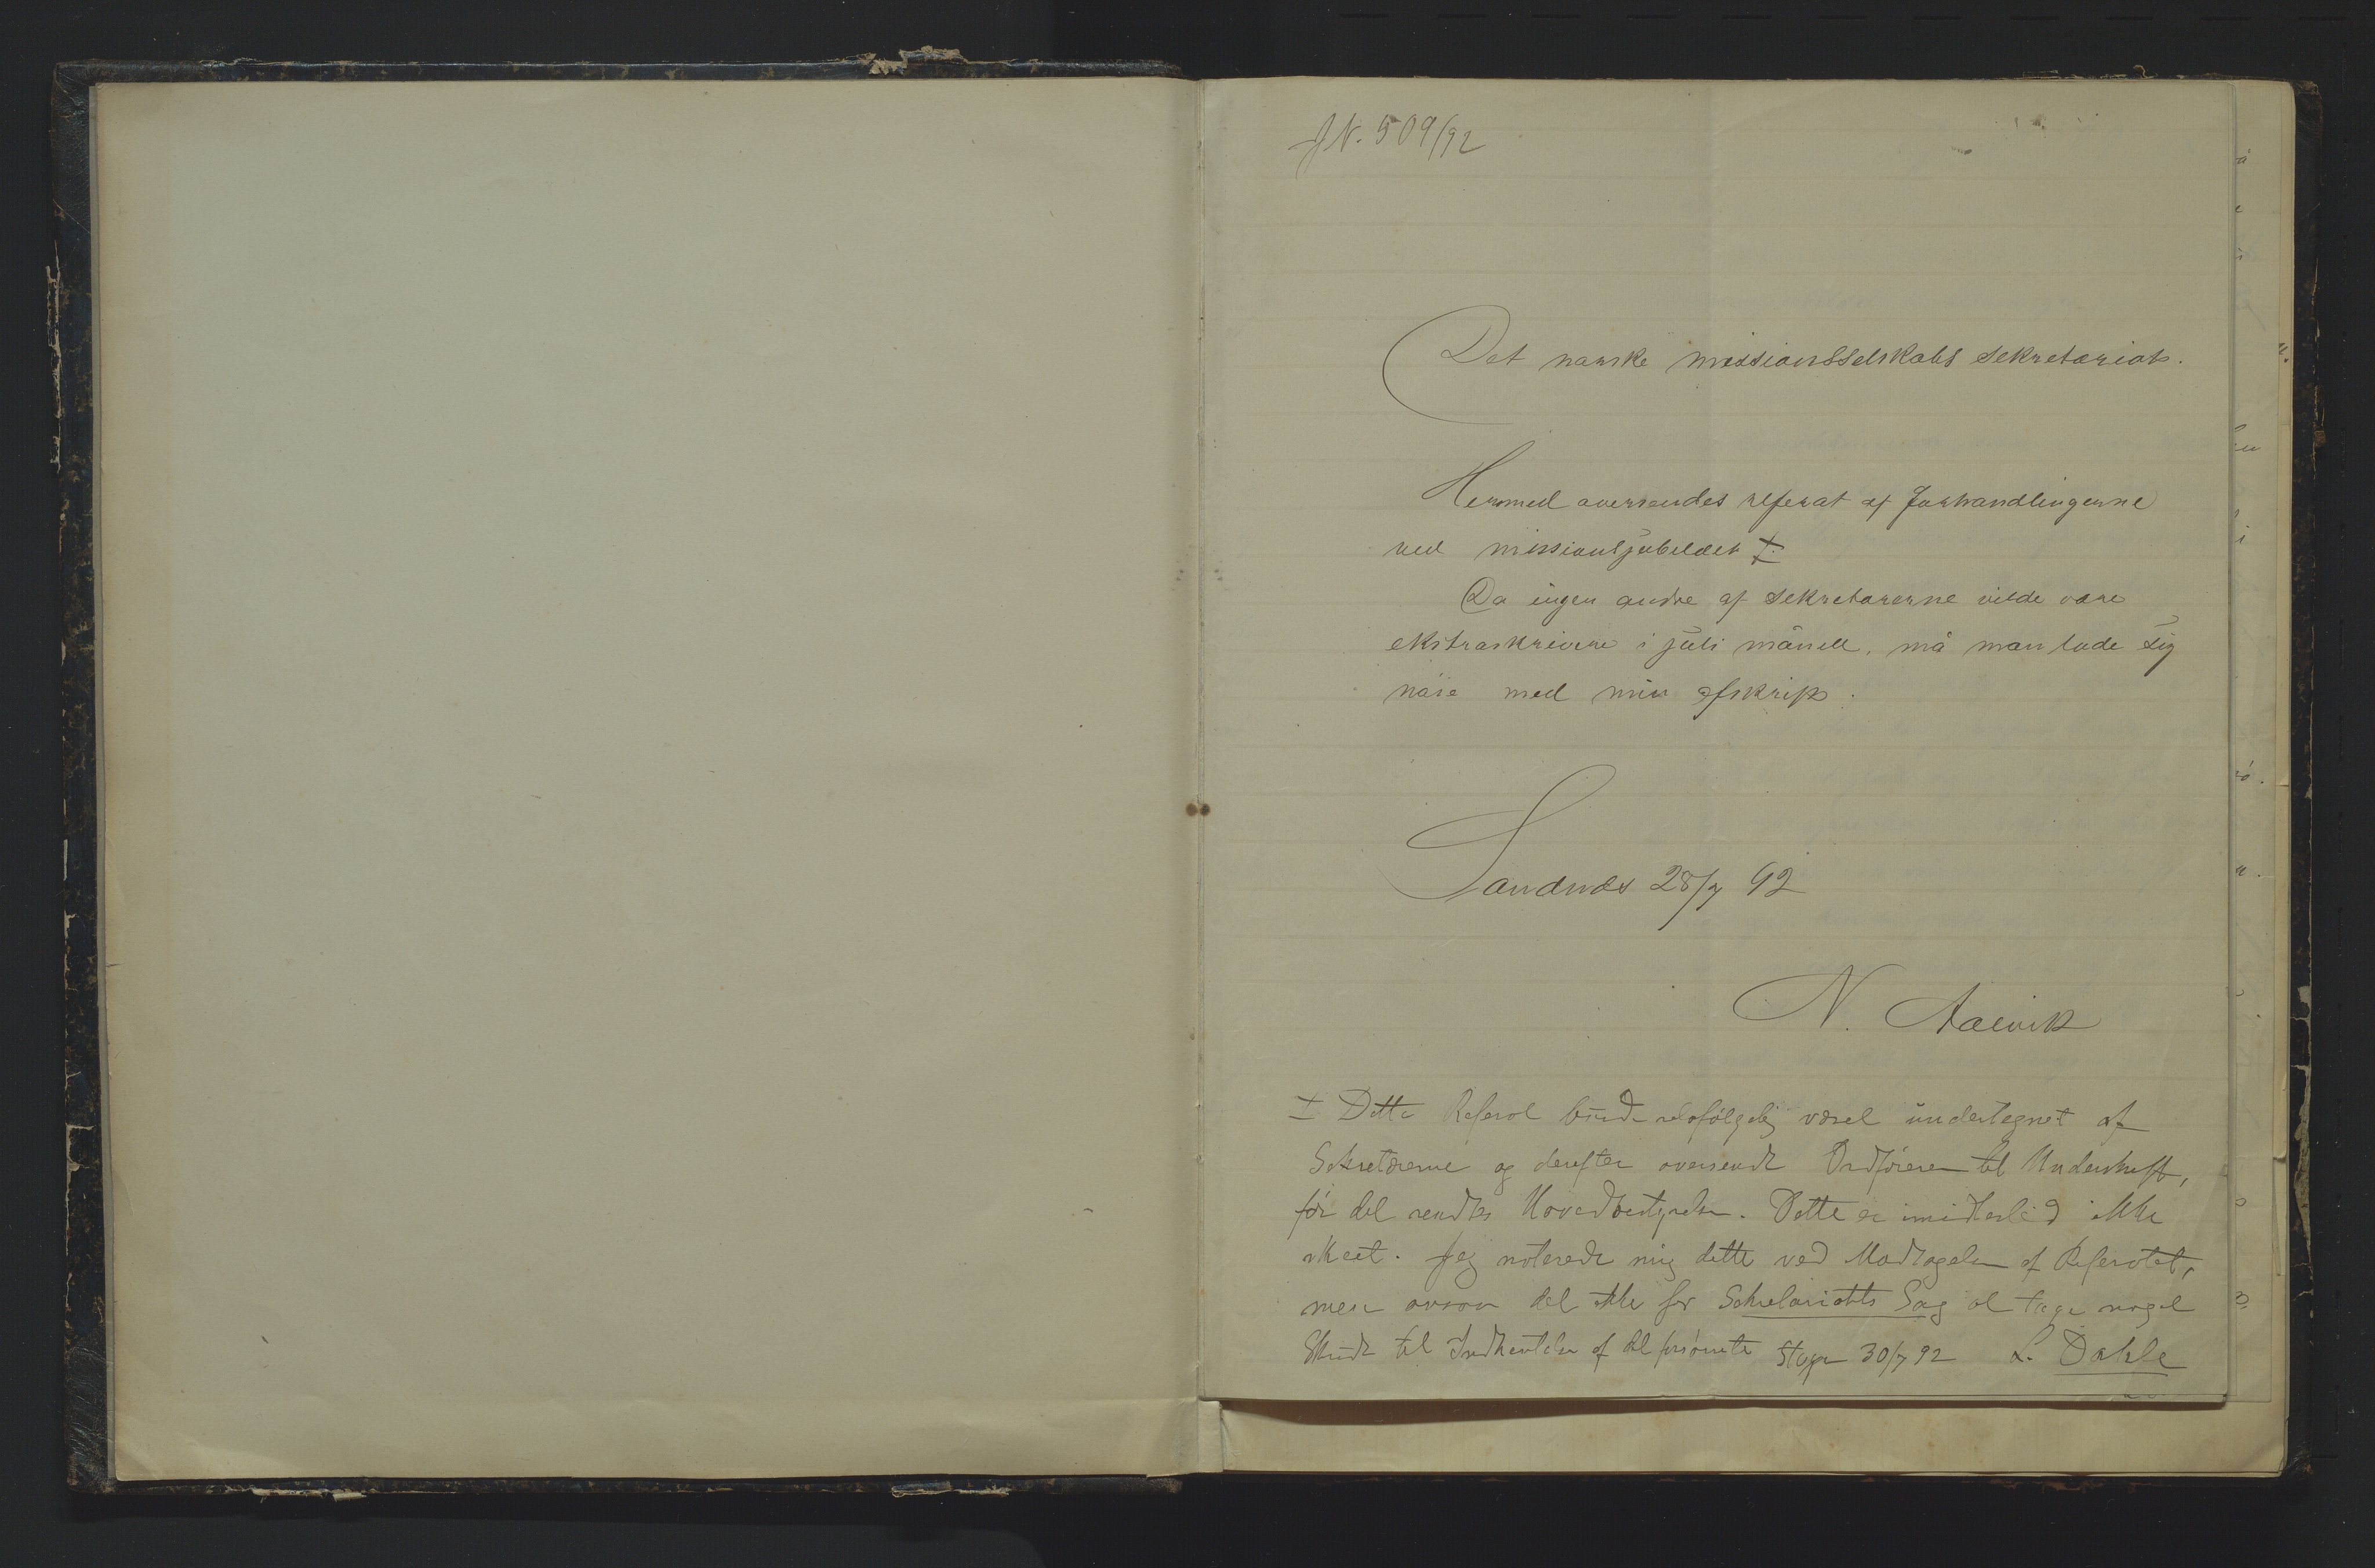 J N. 509/92
Det norske missionsselskabs sekretariat.
Hermed oversendes referat af forhandlingerne
ved missionsjubelæet ☓.
Da ingen andre af sekretærerne vilde være
ekstraskrivere i juli måned, må man lade sig
nöie med min afskrift.
Sandnæs 28/7 92
N. Aalvik
☓ Dette Referat burde selvfölgelig været undertegnet af
Sekretærerne og derefter oversendt Ordföreren til Underskrift,
för det sendtes Hovedbestyrelsen. Dette er imidlertid ikke
skeet. Jeg noterede mig dette ved Modtagelsen af Referatet,
men ansaa det ikke for Sekretariatets Sag at tage noget
Skridt til Indhentelse af det forsömte Stvgr 30/7 92 L. Dahle